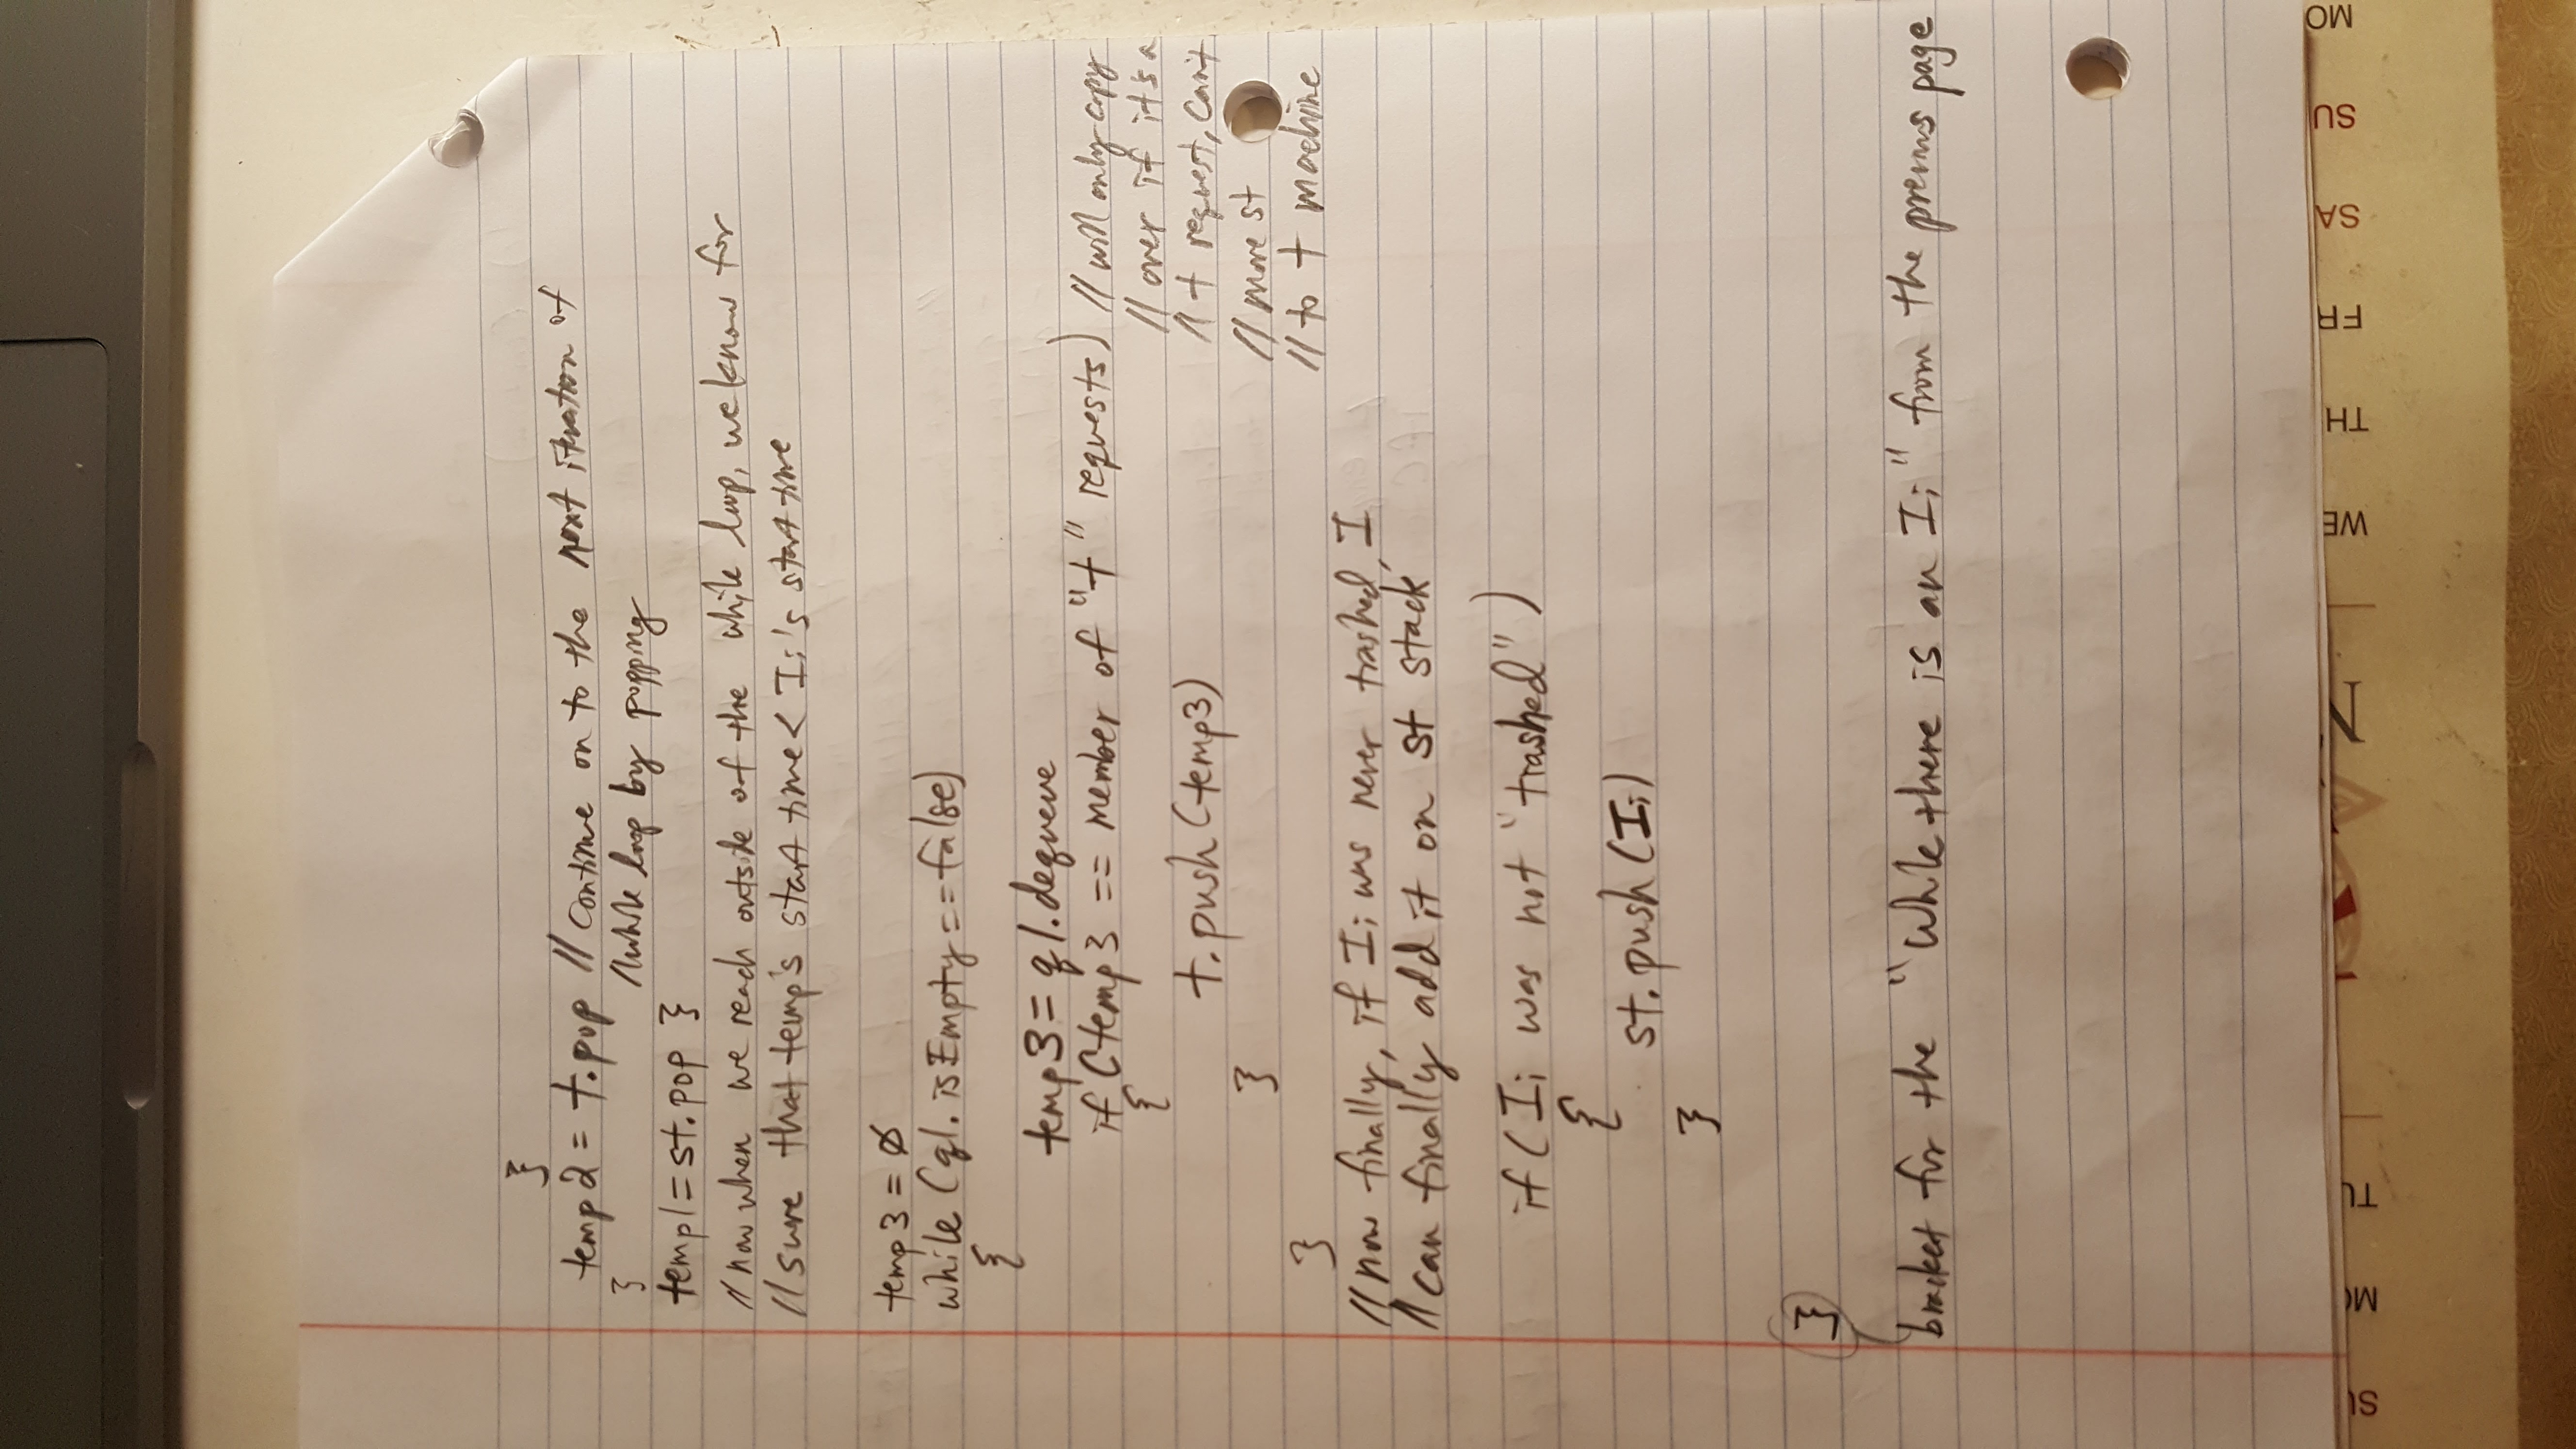 }
temp2 = t.pop // Continue on to the next iteration of
} //while loop by popping
temp1 = st.pop }
// now when we reach outside of the while loop, we know for
// sure that temp's start time < Ii's start time
temp3 = Ø
while (q1.isEmpty == false)
{
temp3 = q1.dequeue
if (temp3 == member of "t" requests) // will only copy
{ // over if it's a
t.push(temp3) // t request, can't
} // move st
} // to t machine
// now finally, if Ii was never trashed, I
// can finally add it on st stack
if (Ii was not "trashed")
{
st.push(Ii)
}
}
bracket for the "While there is an Ii" from the previous page
SU MO TU N WE TH FR SA SU MO